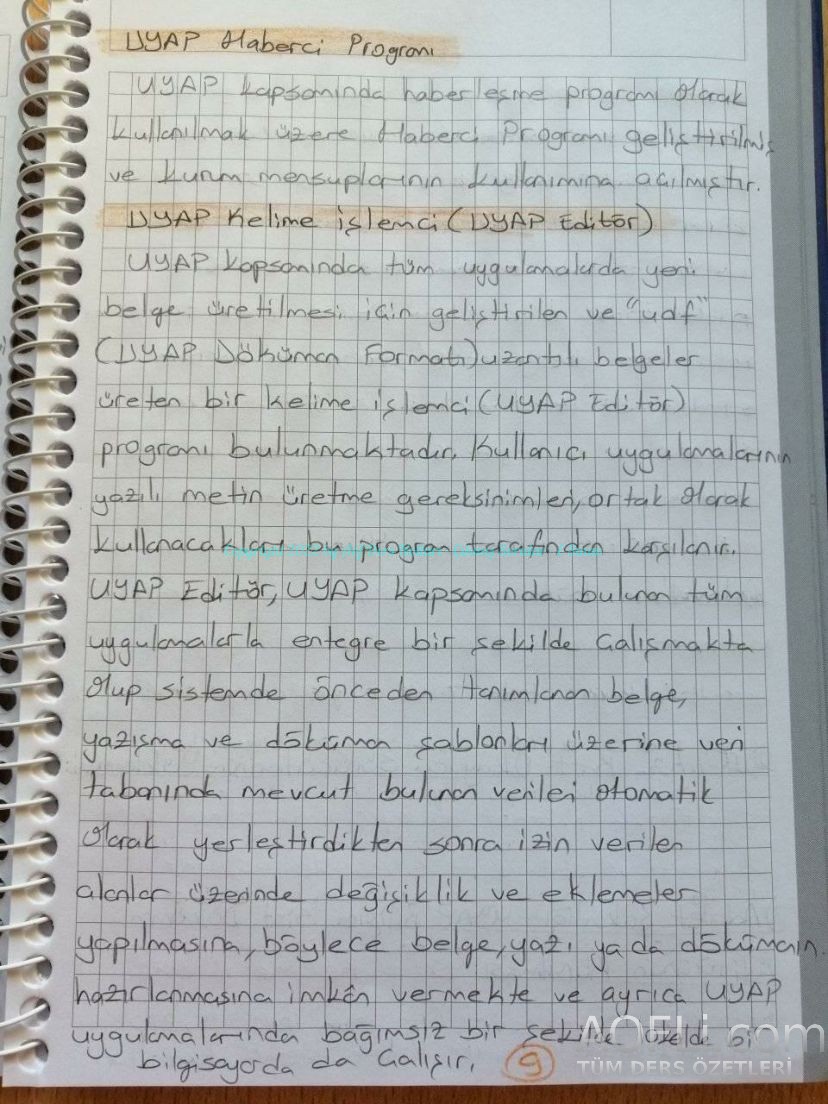 UYAP Haberci Programı
UYAP kapsamında haberleşme programı olarak
kullanılmak üzere Haberci Programı geliştirilmiş
ve kurum mensuplarının kullanımına açılmıştır.
UYAP Kelime işlemci (UYAP Editör)
UYAP kapsamında tüm uygulamalarda yeni
belge üretilmesi için geliştirilen ve "udf"
(UYAP Döküman Formatı) uzantılı belgeler
üreten bir kelime işlemci (UYAP Editör)
programı bulunmaktadır. Kullanıcı uygulamalarının
yazılı metin üretme gereksinimleri, ortak olarak
kullanacakları bu program tarafından karşılanır.
UYAP Editör, UYAP kapsamında bulunan tüm
uygulamalarla entegre bir şekilde çalışmakta
olup sistemde önceden tanımlanan belge,
yazışma ve döküman şablonları üzerine veri
tabanında mevcut bulunan verileri otomatik
olarak yerleştirdikten sonra izin verilen
alanlar üzerinde değişiklik ve eklemeler
yapılmasına, böylece belge, yazı ya da dökümanın
hazırlanmasına imkân vermekte ve ayrıca UYAP
uygulamalarında bağımsız bir şekilde bi
bilgisayarda da çalışır. 9
AOFLi.com
TÜM DERS ÖZETLERİ